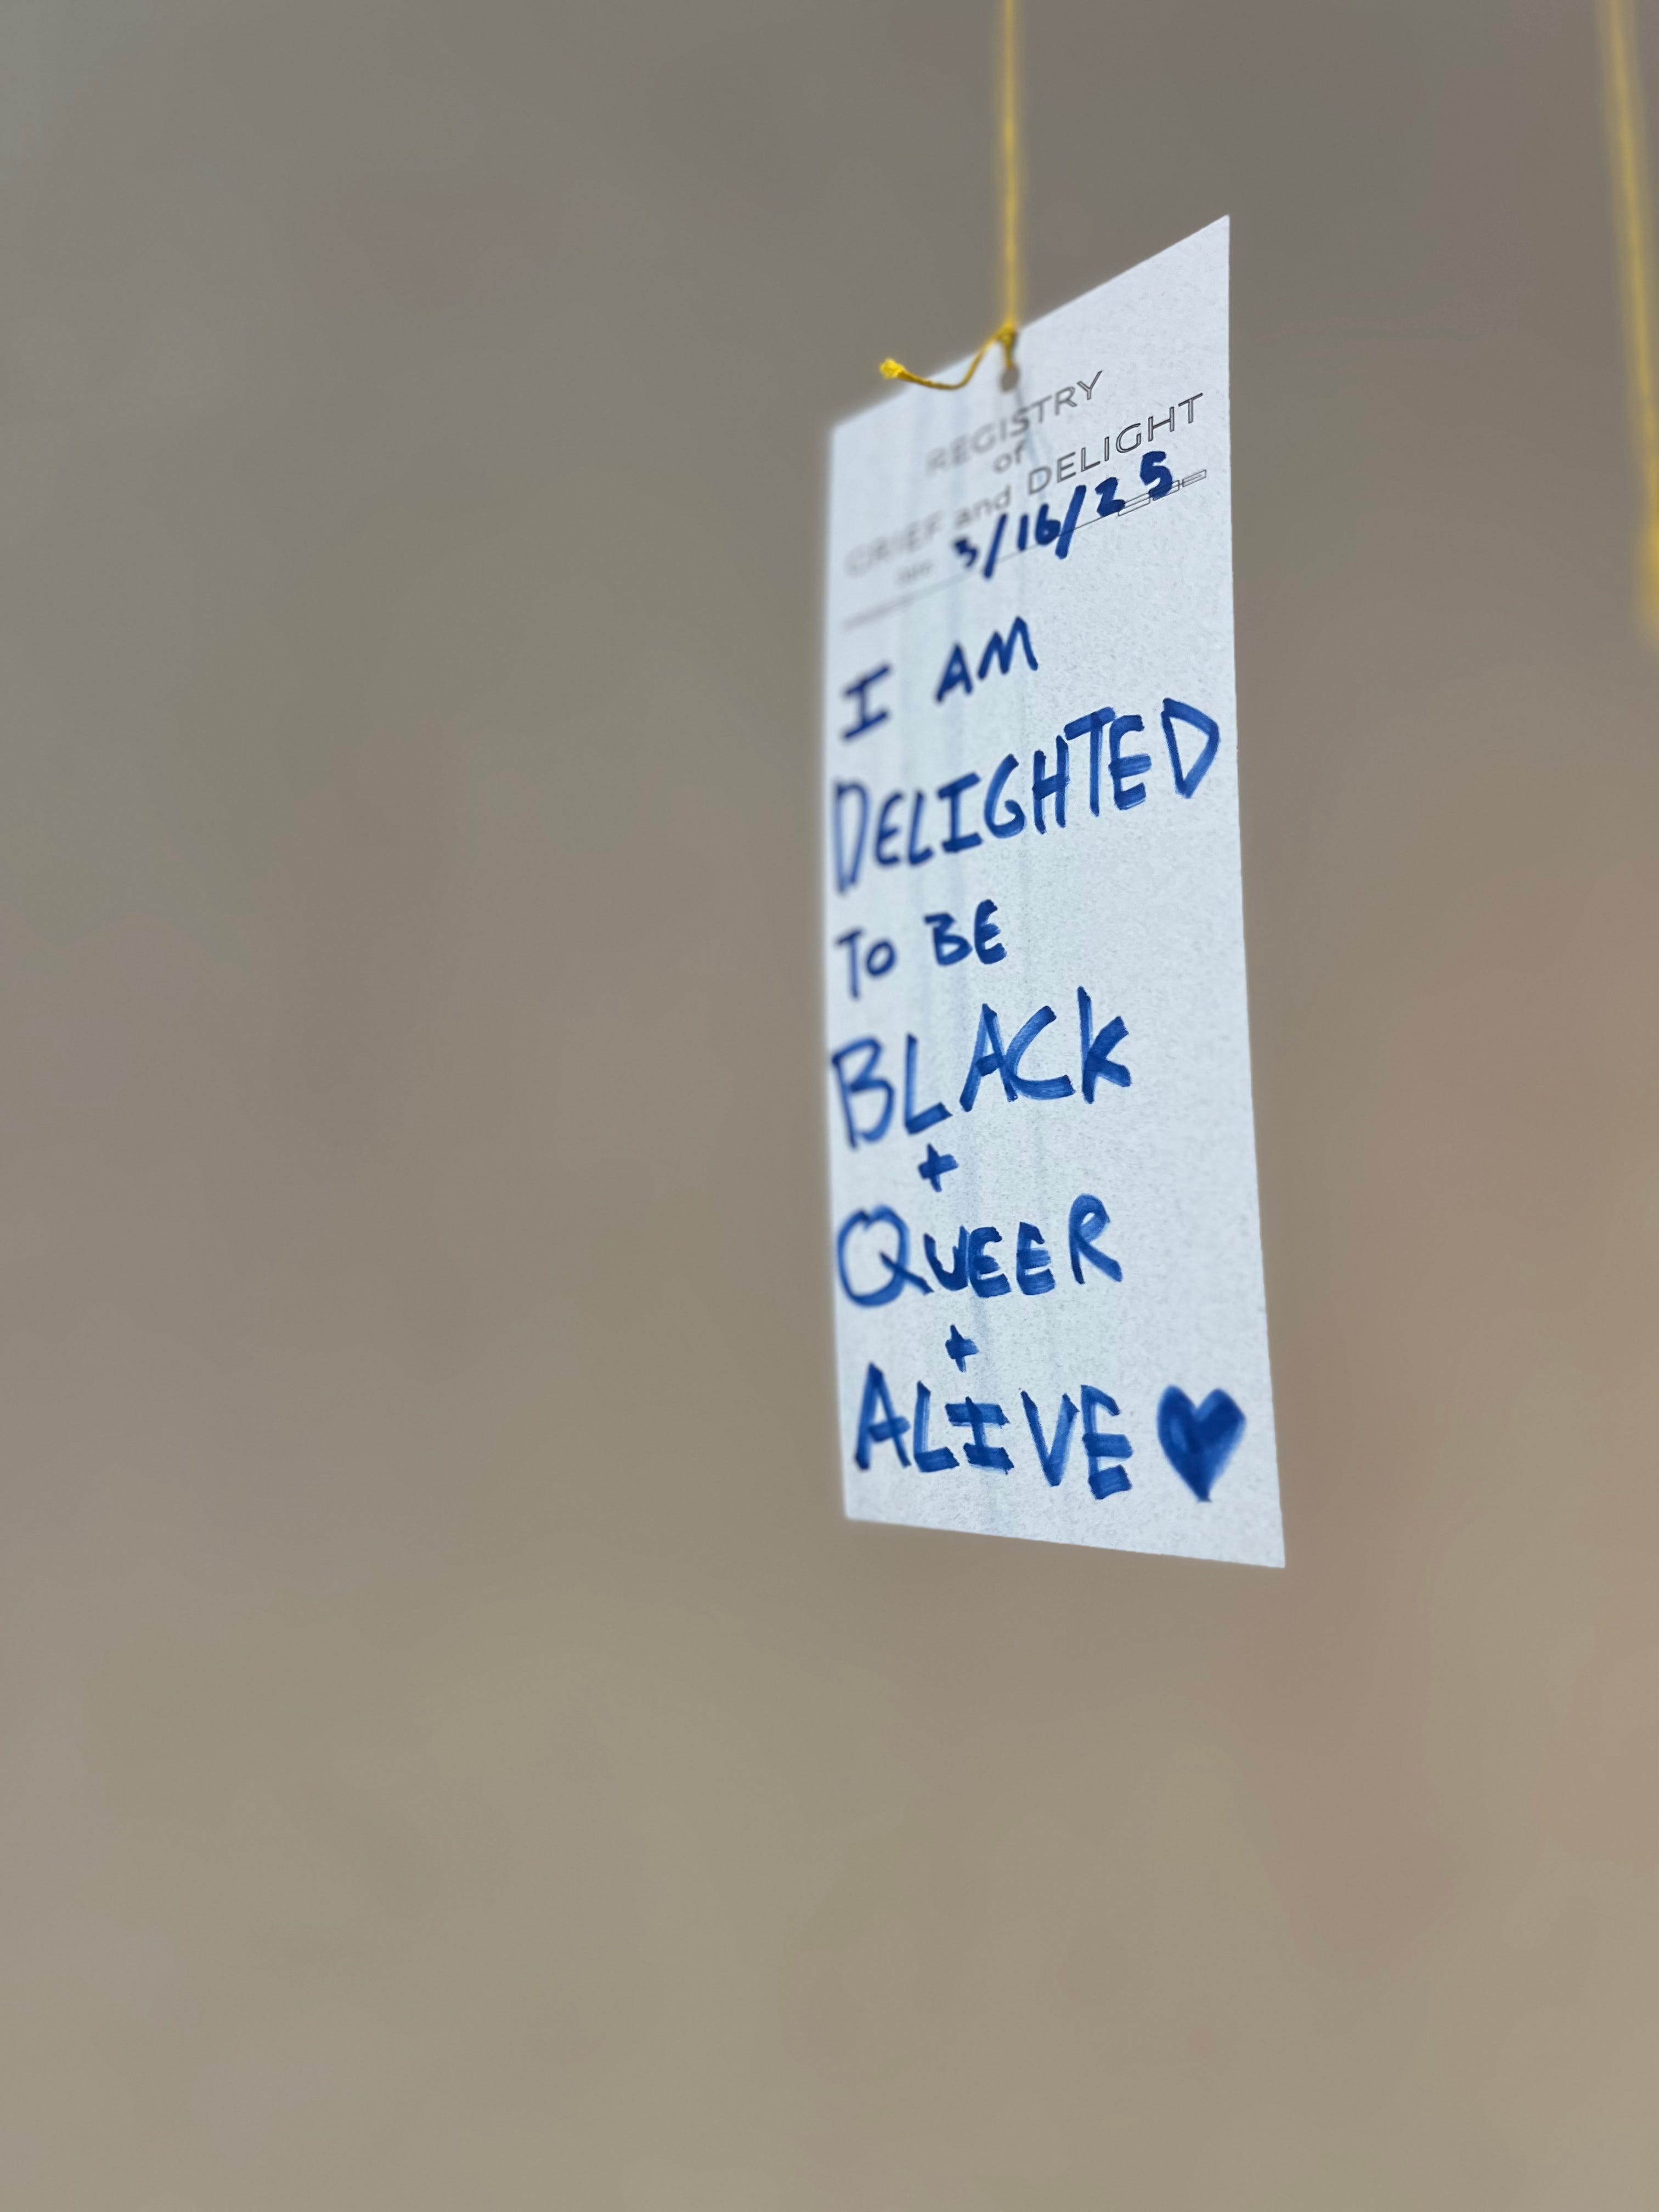 REGISTRY
of
GRIEF and DELIGHT
3/16/25
I AM
DELIGHTED
TO BE
BLACK
+
QUEER
+
ALIVE ♥